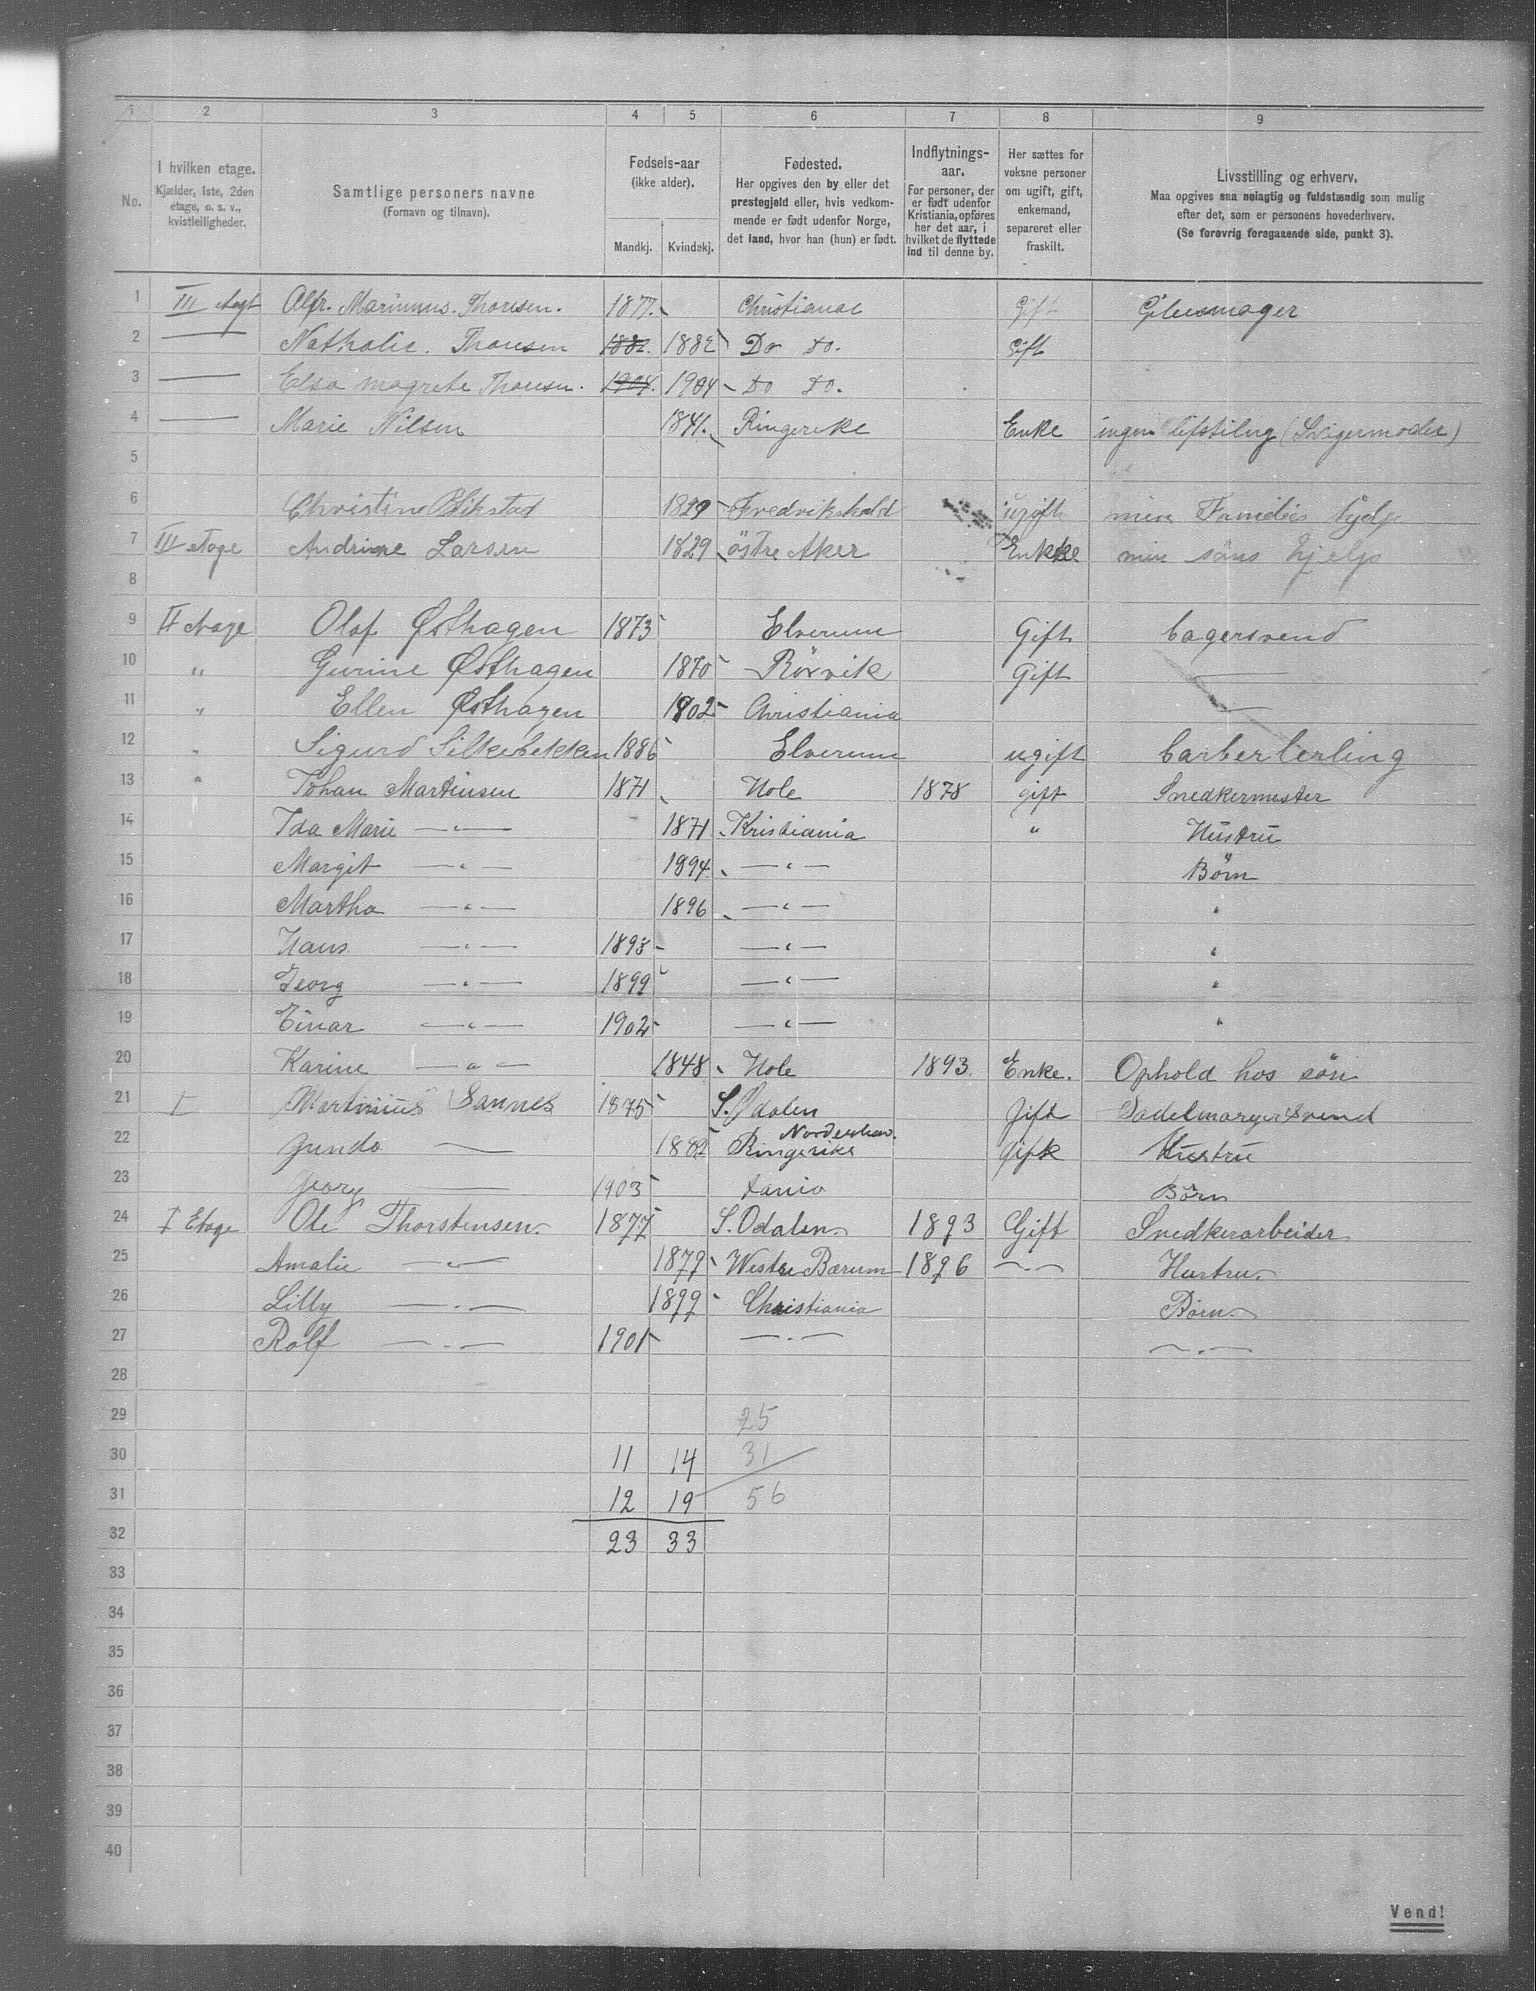 1 2 3 4 5 6 7 8 9
No.
I hvilken etage.
Kjælder, 1ste, 2den
etage, o. s. v.,
kvistleiligheder.
Samtlige personers navne
(Fornavn og tilnavn).
Fødsels-aar
(ikke alder).
Mandkj. Kvindekj.
Fødested.
Her opgives den by eller det
prestegjeld eller, hvis vedkom-
mende er født udenfor Norge,
det land, hvor han (hun) er født.
Indflytnings-
aar.
For personer, der
er født udenfor
Kristiania, opføres
her det aar, i
hvilket de flyttede
ind til denne by.
Her sættes for
voksne personer
om ugift, gift,
enkemand,
separeret eller
fraskilt.
Livsstilling og erhverv.
Maa opgives saa nøiagtig og fuldstændig som mulig
efter det, som er personens hovederhverv.
(Se forøvrig foregaaende side, punkt 3).
1 III Alfr. Marinius. Thonsen. 1877. Christiania Gift
2 — Nathalie. Thonsen 1882. 1882 Do Do. Gift
3 — Elsa magrete Thonsen. 1904. 1904 Do Do.
4 — Marie Nilsen 1841. Ringerike Enke ingen lifstilng (Svigermoder)
5
6 Christine 1829 Fredrikshald ugift min Families hjelp
7 III etage Andrine Larsen 1829 östre Aker Enke min söns hjelp
8
9 II etage Olaf Østhagen 1873 Elverum Gift bagersvend
10 " Gurine Østhagen 1870 Rörvik Gift —
11 " Ellen Østhagen 1902 Christiania —
12 " Sigurd Silkebekken 1886 Elverum ugift barberlerling
13 " Johan Martinsen 1871 Hole 1878 gift Snedkermester
14 Ida Marie —"— 1871 Kristiania " Hustru
15 Margit —"— 1894. —"— Børn
16 Martha —"— 1896 —"— "
17 Hans —"— 1893 —"— "
18 Georg —"— 1899 —"— "
19 Einar —"— 1902 —"— "
20 Karine —"— 1848 Hole 1893. Enke. Ophold hos sön
21 I Martinius Sannes 1875 S. Odalen Gift Sadelmagersvend
22 Gunda — 1882 Ringerike Norderhov. Gift Hustru
23 Georg — 1903 tania Børn
24 I Etage Ole Thorstensen. 1877 S. Odalen. 1893 Gift Snedkerarbeider
25 Amalie —"— 1879 Westre Bærum 1896 —"— Hustru.
26 Lilly —"— 1899 Christiania Børn.
27 Rolf —"— 1901 —"— —"—
28
29 25
30 11 14 31
31 12 19 56
32 23 33
33
34
35
36
37
38
39
40
Vend!